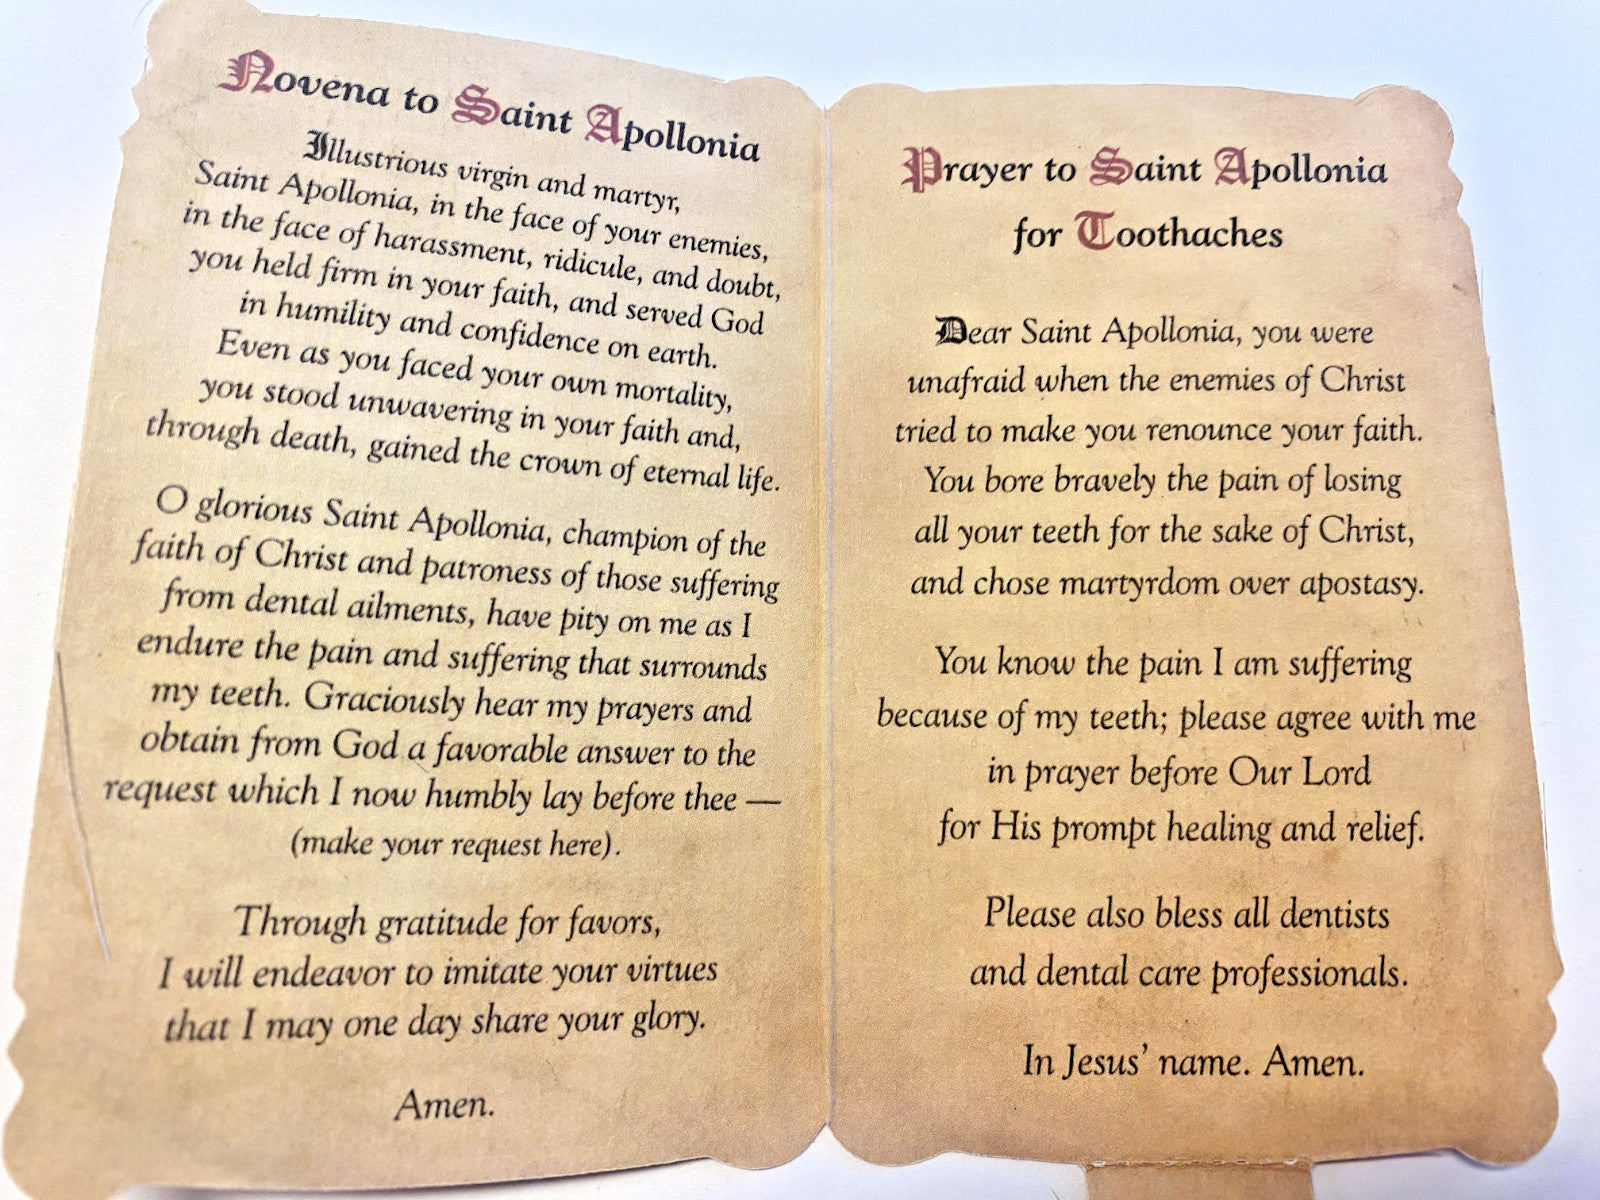 Novena to Saint Apollonia
Illustrious virgin and martyr,
Saint Apollonia, in the face of your enemies,
in the face of harassment, ridicule, and doubt,
you held firm in your faith, and served God
in humility and confidence on earth.
Even as you faced your own mortality,
you stood unwavering in your faith and,
through death, gained the crown of eternal life.
O glorious Saint Apollonia, champion of the
faith of Christ and patroness of those suffering
from dental ailments, have pity on me as I
endure the pain and suffering that surrounds
my teeth. Graciously hear my prayers and
obtain from God a favorable answer to the
request which I now humbly lay before thee —
(make your request here).
Through gratitude for favors,
I will endeavor to imitate your virtues
that I may one day share your glory.
Amen.
Prayer to Saint Apollonia
for Toothaches
Dear Saint Apollonia, you were
unafraid when the enemies of Christ
tried to make you renounce your faith.
You bore bravely the pain of losing
all your teeth for the sake of Christ,
and chose martyrdom over apostasy.
You know the pain I am suffering
because of my teeth; please agree with me
in prayer before Our Lord
for His prompt healing and relief.
Please also bless all dentists
and dental care professionals.
In Jesus' name. Amen.